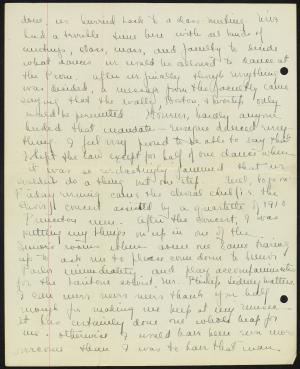 down we hurried back to a class meeting. We've
had a terrible time here with all kinds of
meetings, class, mass, and faculty to decide
what dances we would be allowed to dance at
the Prom. After we finally though everything
was decided, a message from the faculty came
saying that the waltz, Boston, & twostep only
would be permitted. However, hardly anyone
heeded that mandate - everyone danced every-
thing. I feel very proud to be able to say that
I kept the law except for half of one dance when
it was so jammed that we
couldn't do a thing but one step. Well, to go on
Friday evening came the choral club's & the
concert assisted by a quartette of 1910
Princeton men. After the concert, I was
putting my things on up in one of the
rooms when some one came tearing
up to ask me to please come down to
Parlor immediately and play accompaniments
for the baritone soloist, Mr. Philip Sidney Watters.
I can never never never thank you half
enough for making me keep at my music.
It has certainly done one whole heap for
me. Otherwise I would have been even more
than I was to have that man